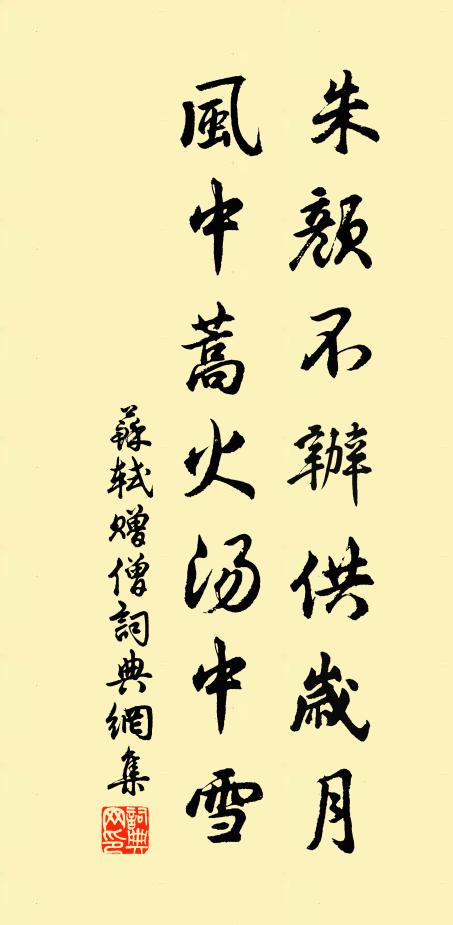 朱顏不辦供歲月
風中蒿火汤中雪
蘇軾赠僧詞典網集
詞典
网印